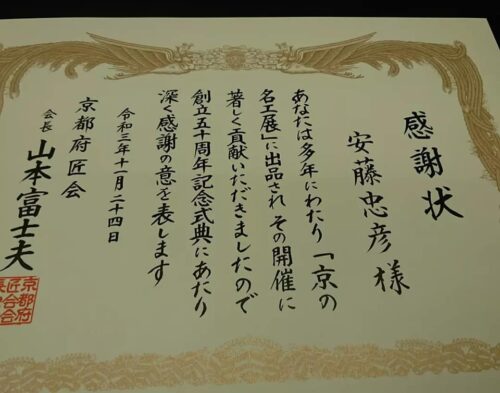 感謝状
安藤忠彦様
あなたは多年にわたり「京の
名工展」に出品され その開催に
著しく貢献いただきましたので
創立五十周年記念式典にあたり
深く感謝の意を表します
令和三年十一月二十四日
京都府匠会
会長 山本富士夫
京都府
匠会会